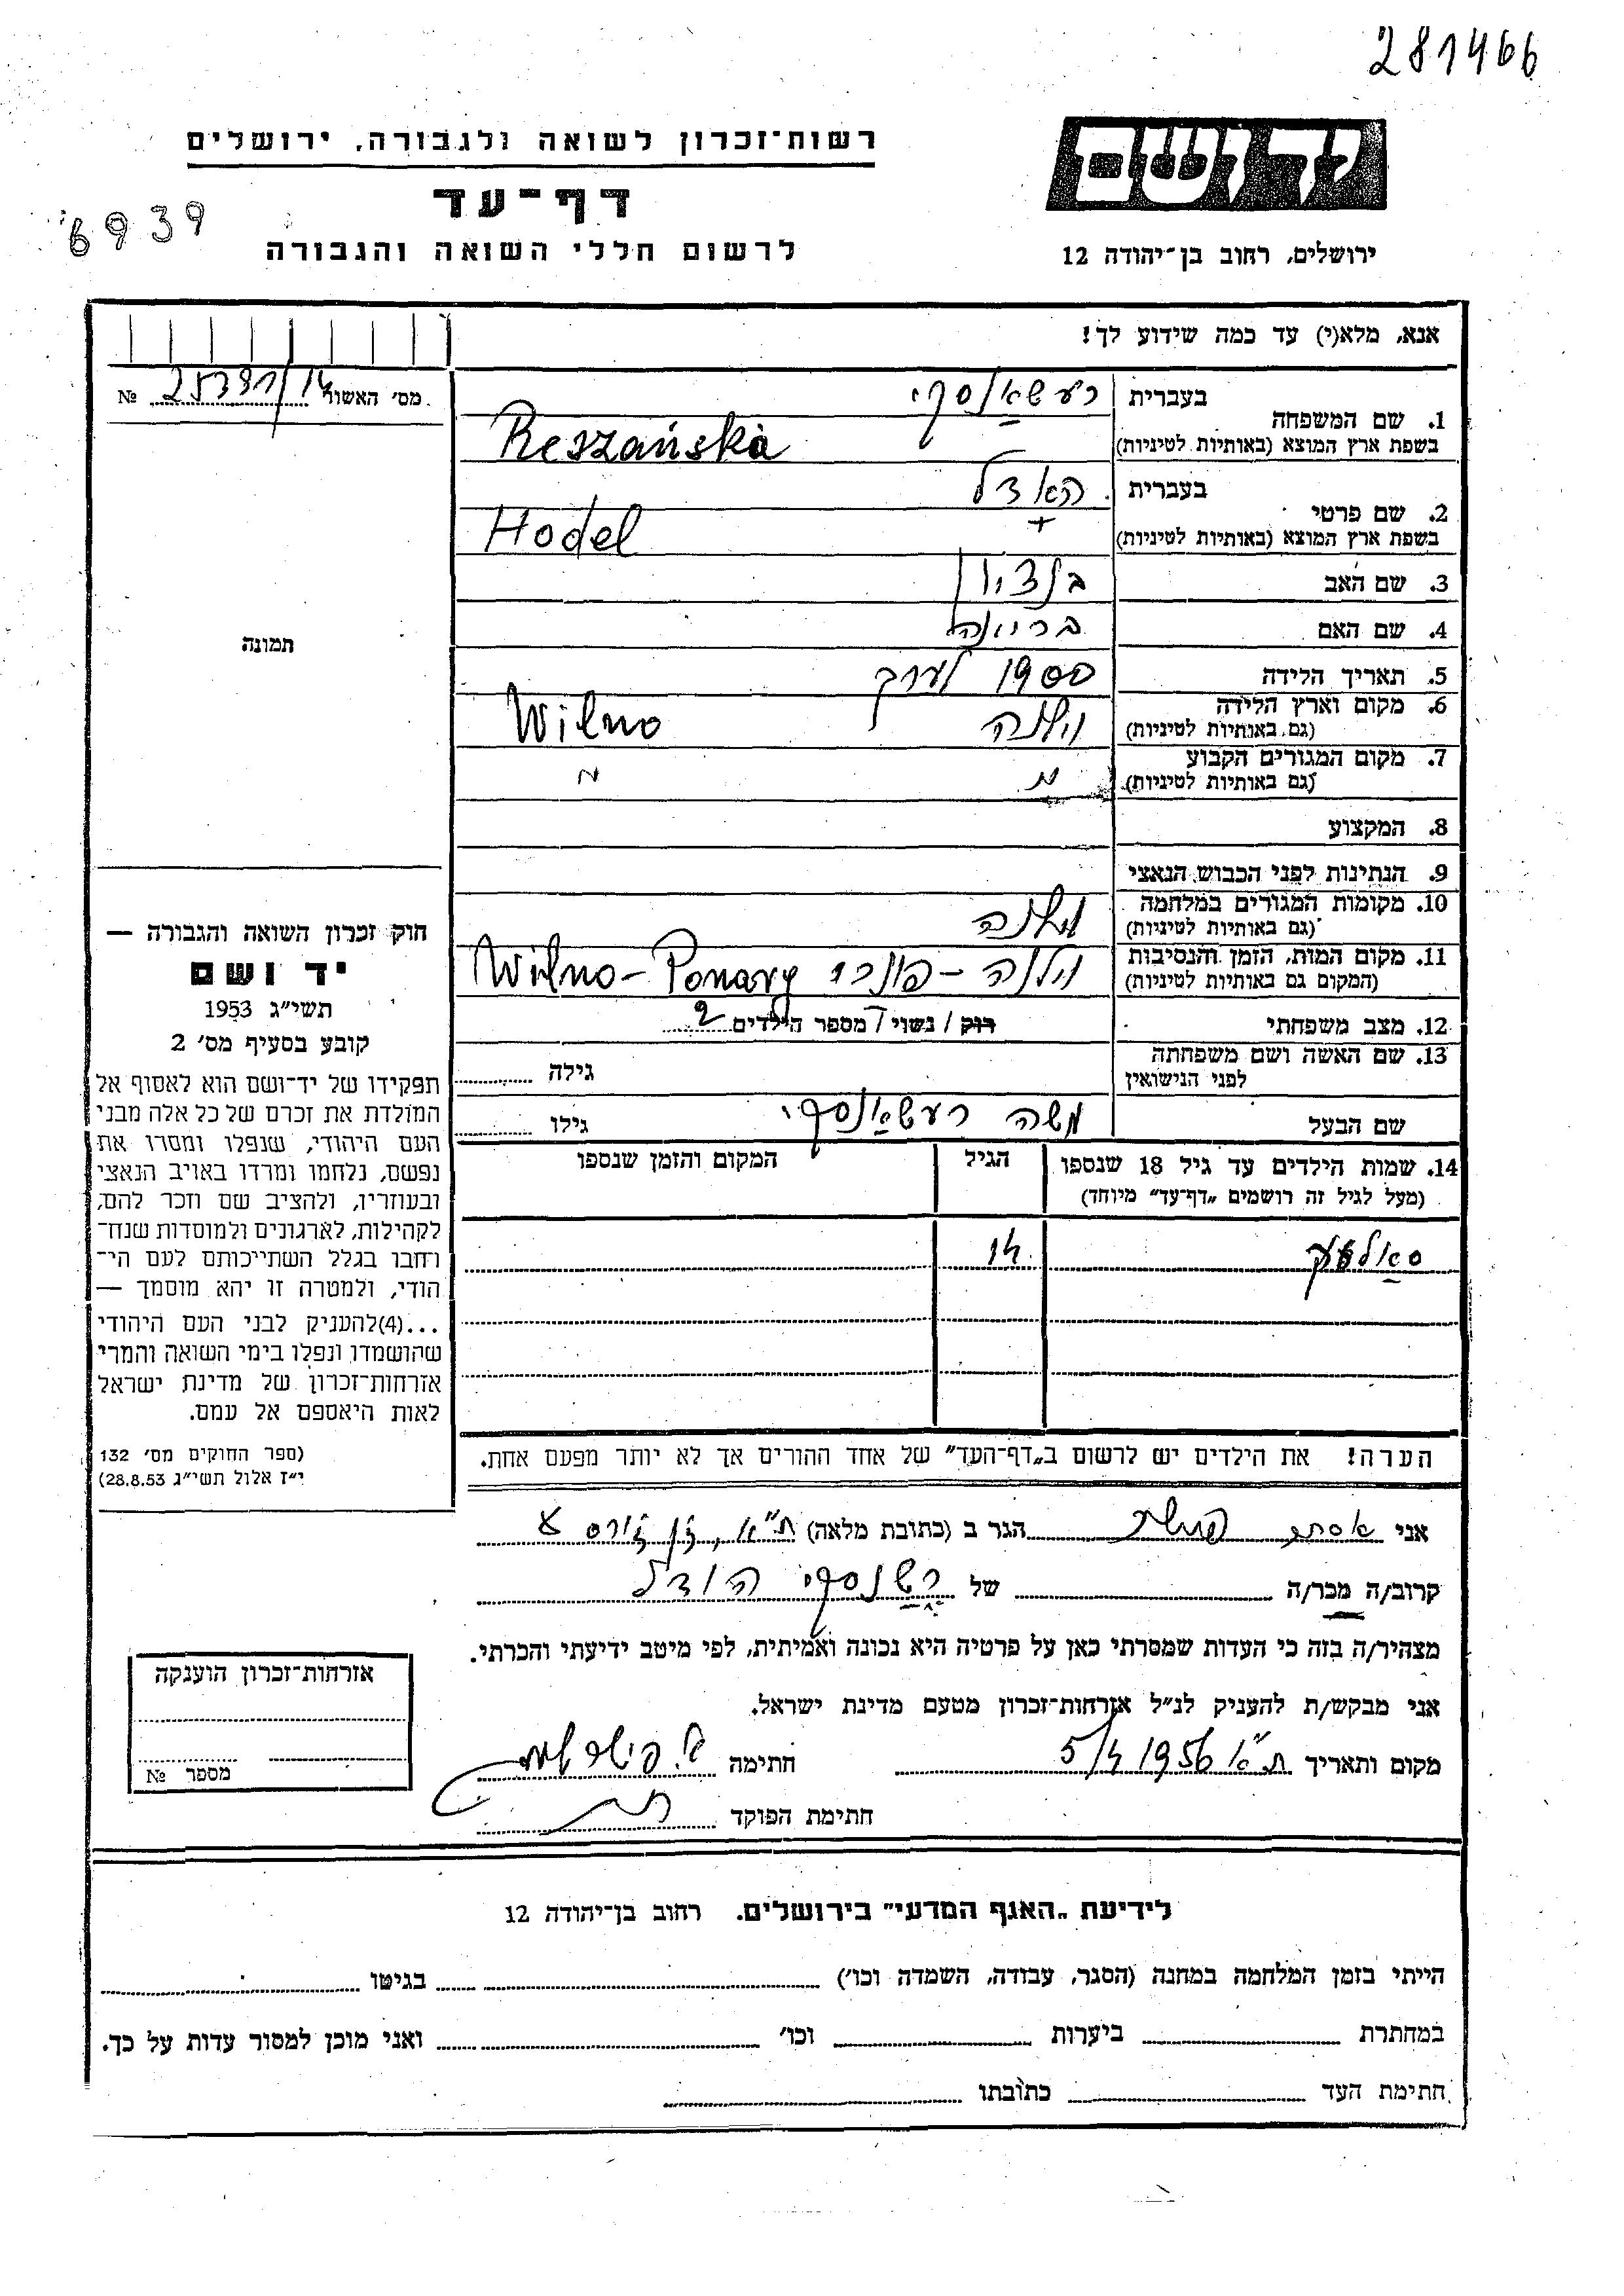 281466
רשות־זכרון לשואה ולגבורה, ירושלים
יד ושם
דף־עד
6939
לרשום חללי השואה והגבורה
ירושלים, רחוב בן־יהודה 12
אנא, מלא(י) עד כמה שידוע לך!
מס׳ האשור 25391/14 №
1. שם המשפחה
בעברית רעשאַנסקי
בשפת ארץ המוצא (באותיות לטיניות) Reszańska
2. שם פרטי
בעברית האדל
בשפת ארץ המוצא (באותיות לטיניות) Hodel
3. שם האב בנציון
4. שם האם
תמונה
5. תאריך הלידה 1900 לערך
6. מקום וארץ הלידה
(גם באותיות לטיניות) וילנה Wilno
7. מקום המגורים הקבוע
(גם באותיות לטיניות) " "
8. המקצוע
9. הנתינות לפני הכבוש הנאצי
10. מקומות המגורים במלחמה
(גם באותיות לטיניות) וילנה
11. מקום המות, הזמן והנסיבות
(המקום גם באותיות לטיניות) וילנה - פונרי Wilno - Ponary
12. מצב משפחתי רוק / נשוי / מספר הילדים 2
13. שם האשה ושם משפחתה
לפני הנישואין
גילה
שם הבעל משה רעשאַנסקי גילו
14. שמות הילדים עד גיל 18 שנספו
(מעל לגיל זה רושמים „דף־עד” מיוחד)
הגיל
המקום והזמן שנספו
14
הערה! את הילדים יש לרשום ב„דף־העד” של אחד ההורים אך לא יותר מפעם אחת.
חוק זכרון השואה והגבורה —
יד ושם
תשי״ג 1953
קובע בסעיף מס׳ 2
תפקידו של יד־ושם הוא לאסוף אל
המולדת את זכרם של כל אלה מבני
העם היהודי, שנפלו ומסרו את
נפשם, נלחמו ומרדו באויב הנאצי
ובעוזריו, ולהציב שם וזכר להם,
לקהילות, לארגונים ולמוסדות שנח־
רבו בגלל השתייכותם לעם הי־
הודי, ולמטרה זו יהא מוסמך —
...(4)להעניק לבני העם היהודי
שהושמדו ונפלו בימי השואה והמרי
אזרחות־זכרון של מדינת ישראל
לאות היאספם אל עמם.
(ספר החוקים מס׳ 132
י״ז אלול תשי״ג 28.8.53)
אני אסתר הגר ב (כתובת מלאה) ת״א,
קרוב/ה מכר/ה של רשנסקי הודל
מצהיר/ה בזה כי העדות שמסרתי כאן על פרטיה היא נכונה ואמיתית, לפי מיטב ידיעתי והכרתי.
אני מבקש/ת להעניק לנ״ל אזרחות־זכרון מטעם מדינת ישראל.
מקום ותאריך ת״א 5/4 1956 חתימה
חתימת הפוקד
אזרחות־זכרון הוענקה
מספר №
לידיעת „האגף המדעי” בירושלים. רחוב בן־יהודה 12
הייתי בזמן המלחמה במחנה (הסגר, עבודה, השמדה וכו׳) בגיטו
במחתרת ביערות וכו׳ ואני מוכן למסור עדות על כך.
חתימת העד כתובתו